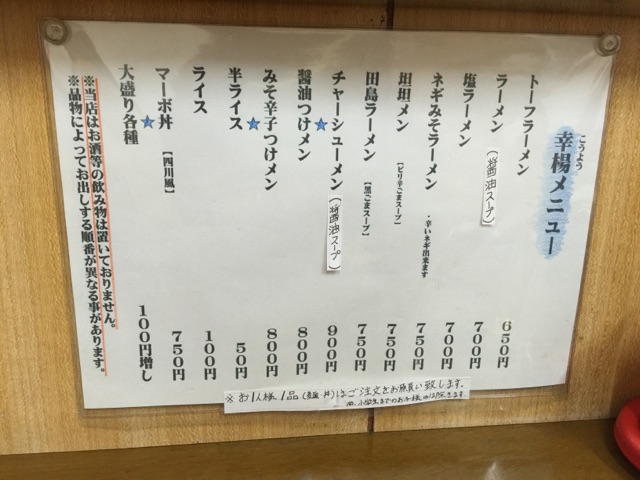 こうよう
幸楊メニュー
トーフラーメン 650円
ラーメン (醤油スープ) 700円
塩ラーメン 700円
ネギみそラーメン ・辛いネギ出来ます 750円
坦坦メン 【ピリ辛ごまスープ】 750円
田島ラーメン 【黒ごまスープ】 750円
チャーシューメン (醤油スープ) 900円
醤油つけメン 800円
みそ辛子つけメン 800円
半ライス 50円
ライス 100円
マーボ丼 【四川風】 750円
大盛り各種 100円増し
※当店はお酒等の飲み物は置いておりません。
※品物によってお出しする順番が異なる事があります。
※お1人様1品(麺・丼)はご注文をお願い致します。
小学生までのお子様は除きます。